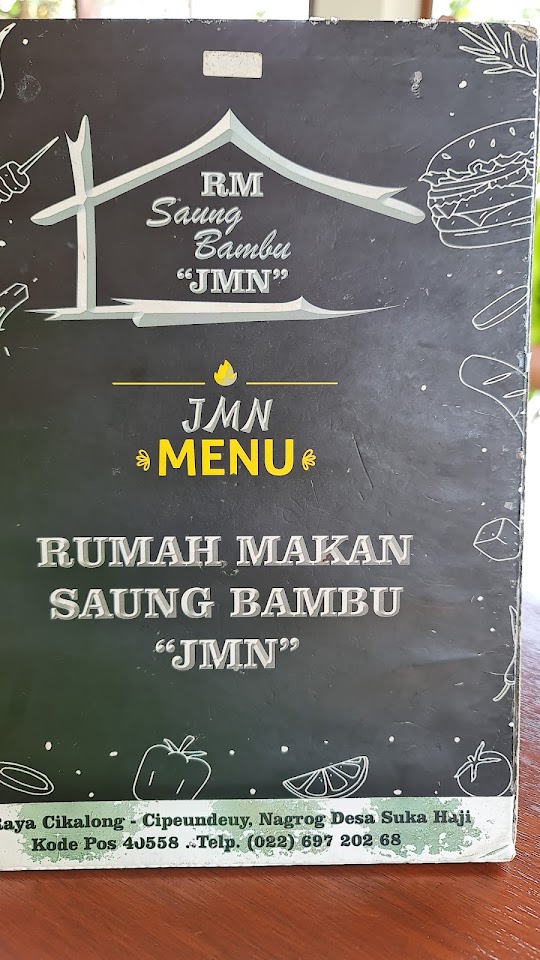 RM
Saung
Bambu
“JMN”
JMN
MENU
RUMAH MAKAN
SAUNG BAMBU
“JMN”
Raya Cikalong - Cipeundeuy, Nagrog Desa Suka Haji
Kode Pos 40558 ..Telp. (022) 697 202 68